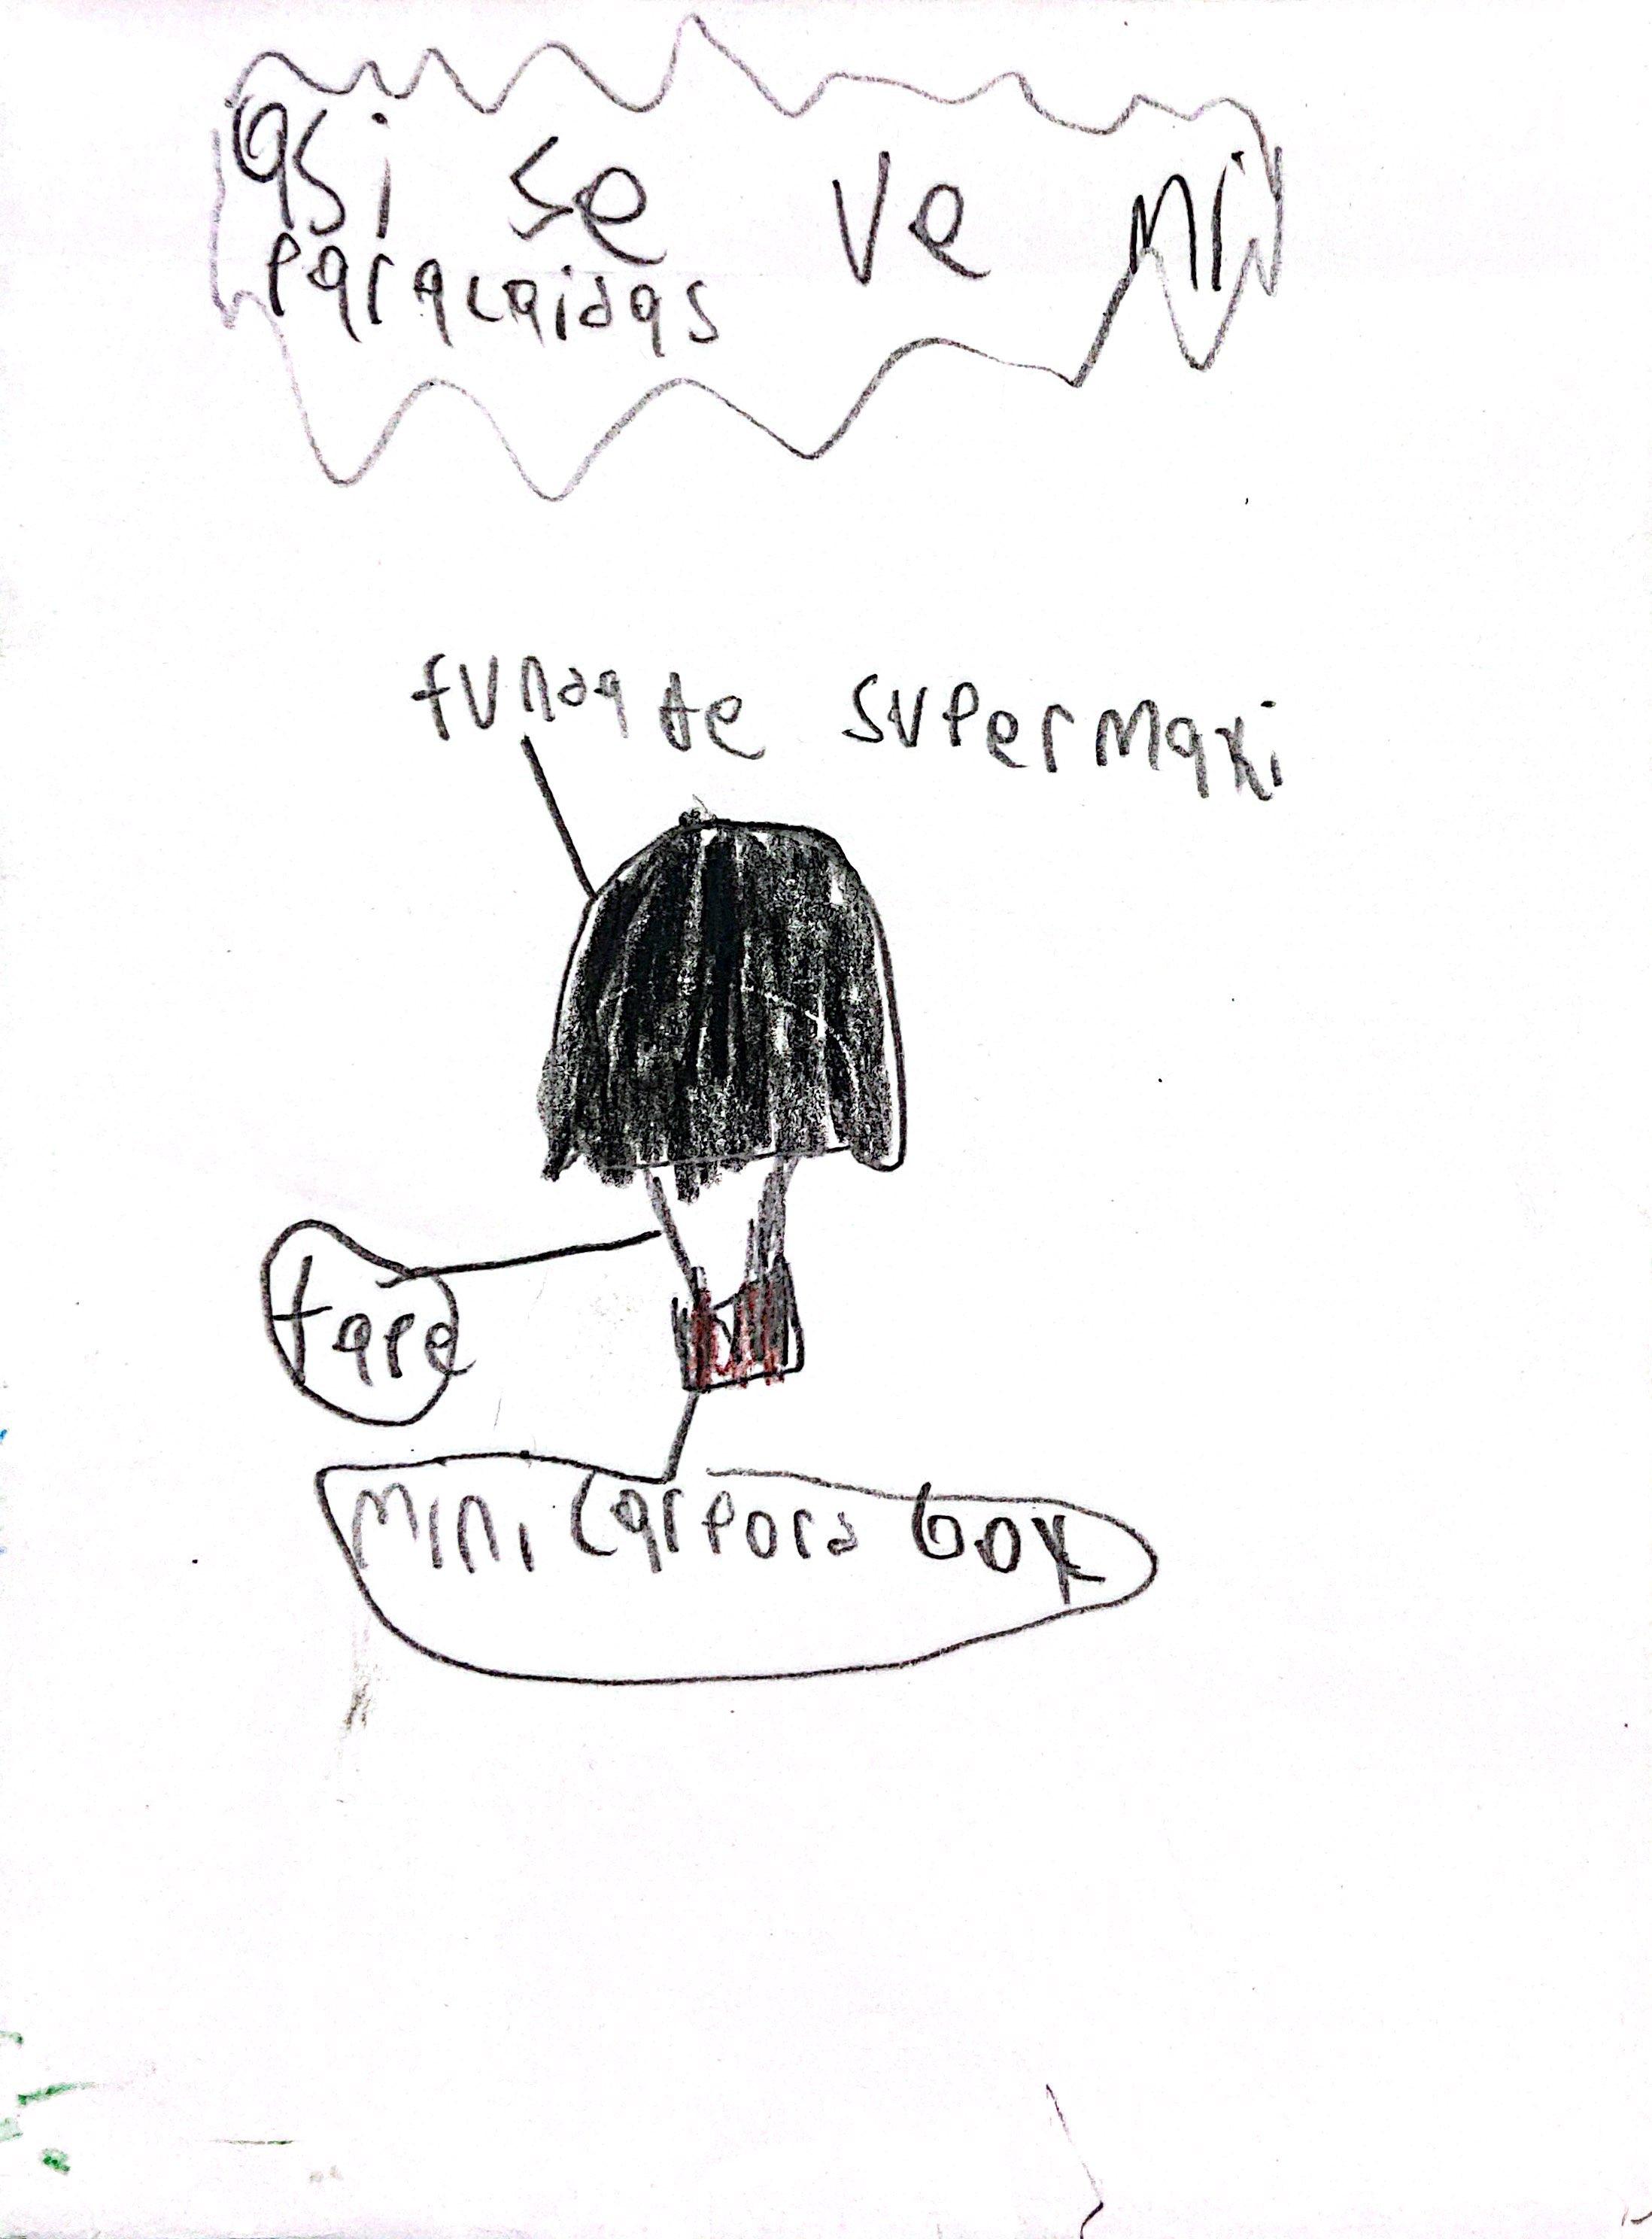 asi se ve mi
paracaidas
funda de supermaxi
tape
mini carpord box